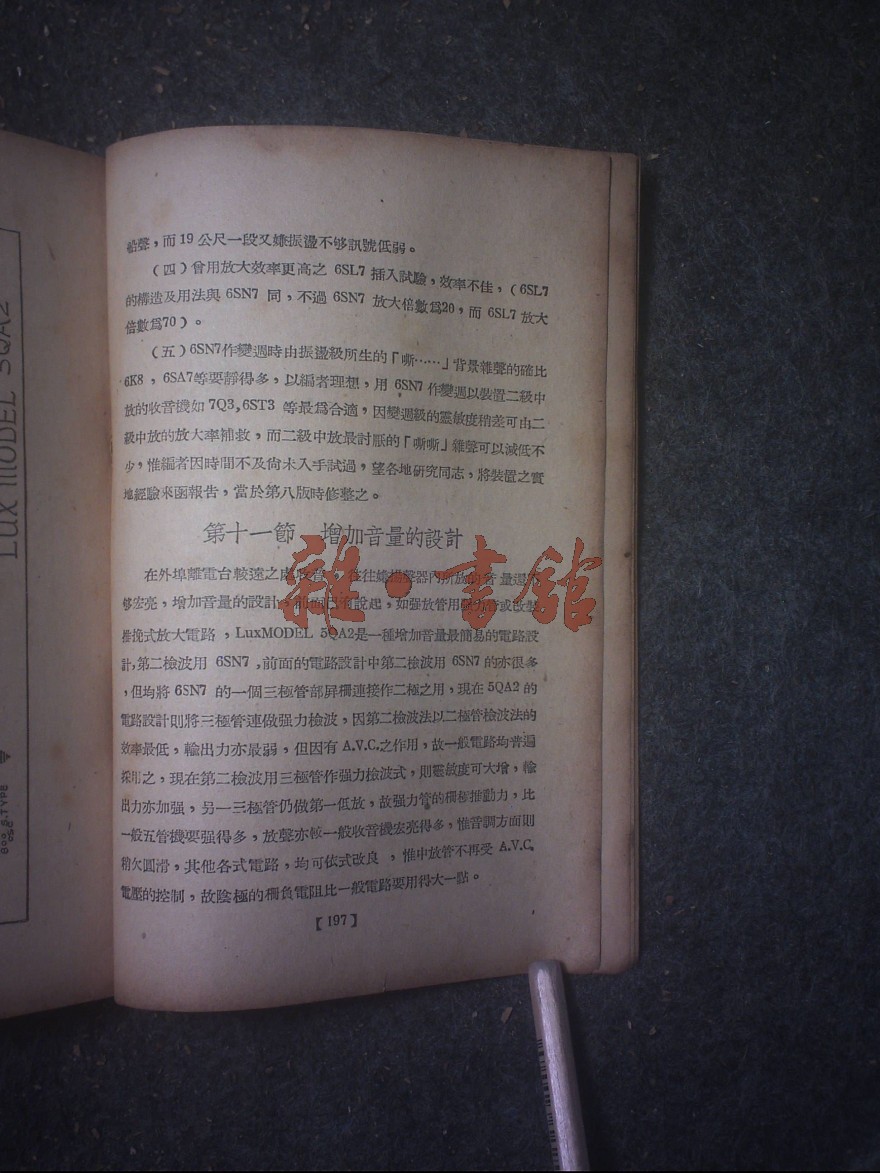 船聲，而19公尺一段又嫌振盪不够訊號低弱。
（四）曾用放大效率更高之 6SL7 插入試驗，效率不佳，（6SL7
的構造及用法與 6SN7 同，不過 6SN7 放大倍數爲20，而 6SL7 放大
倍數爲70）。
（五）6SN7作變週時由振盪級所生的「嘶……」背景雜聲的確比
6K8，6SA7等要靜得多，以編者理想，用 6SN7 作變週以裝置二級中
放的收音機如 7Q3,6ST3 等最爲合適，因變週級的靈敏度稍差可由二
級中放的放大率補救，而二級中放最討厭的「嘶嘶」雜聲可以減低不
少，惟編者因時間不及尙未入手試過，望各地硏究同志，將裝置之實
地經驗來函報告，當於第八版時修整之。
第十一節 增加音量的設計
在外埠離電台較遠之處收音，往往嫌揚聲器內所放的音量還不
够宏亮，增加音量的設計，前面已有說起，如强放管用
推挽式放大電路，LuxMODEL 5QA2是一種增加音量最簡易的電路設
計,第二檢波用 6SN7,前面的電路設計中第二檢波用 6SN7的亦很多
，但均將 6SN7 的一個三極管部屏柵連接作二極之用，現在5QA2的
電路設計則將三極管連做强力檢波，因第二檢波法以二極管檢波法的
效率最低，輸出力亦最弱，但因有 A.V.C.之作用，故一般電路均普遍
採用之，現在第二檢波用三極管作强力檢波式，則靈敏度可大增，輸
出力亦加强，另一三極管仍做第一低放，故强力管的柵極推動力，比
一般五管機要强得多，放聲亦較一般收音機宏亮得多，惟音調方面則
稍欠圓滑，其他各式電路，均可依式改良，惟中放管不再受 A.V.C.
電壓的控制，故陰極的柵負電阻比一般電路要用得大一點。
[197]
LUX MODEL 5QA2
800 S.TYPE
OSC
雜·書館